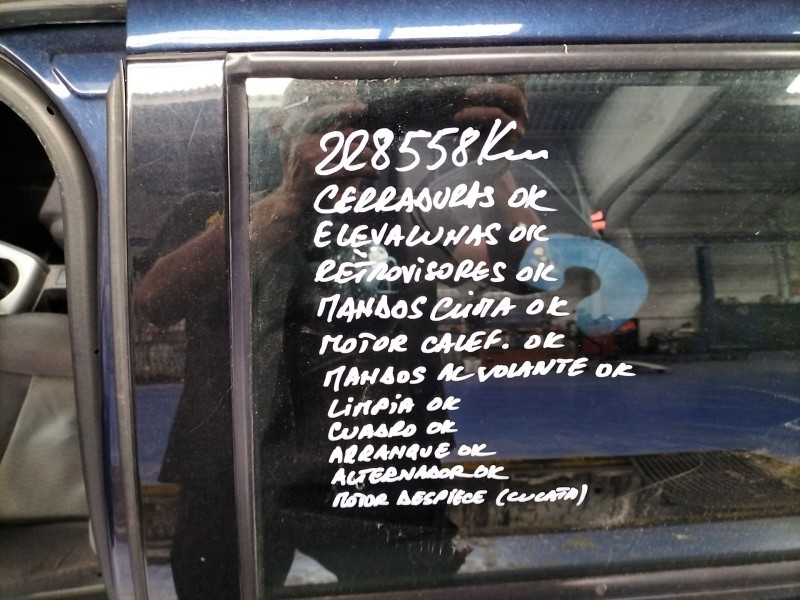 228558Km
CERRADURAS OK
ELEVALUNAS OK
RETROVISORES OK
MANDOS CLIMA OK
MOTOR CALEF. OK
MANDOS AL VOLANTE OK
LIMPIA OK
CUADRO OK
ARRANQUE OK
ALTERNADOR OK
MOTOR DESPIECE (CULATA)